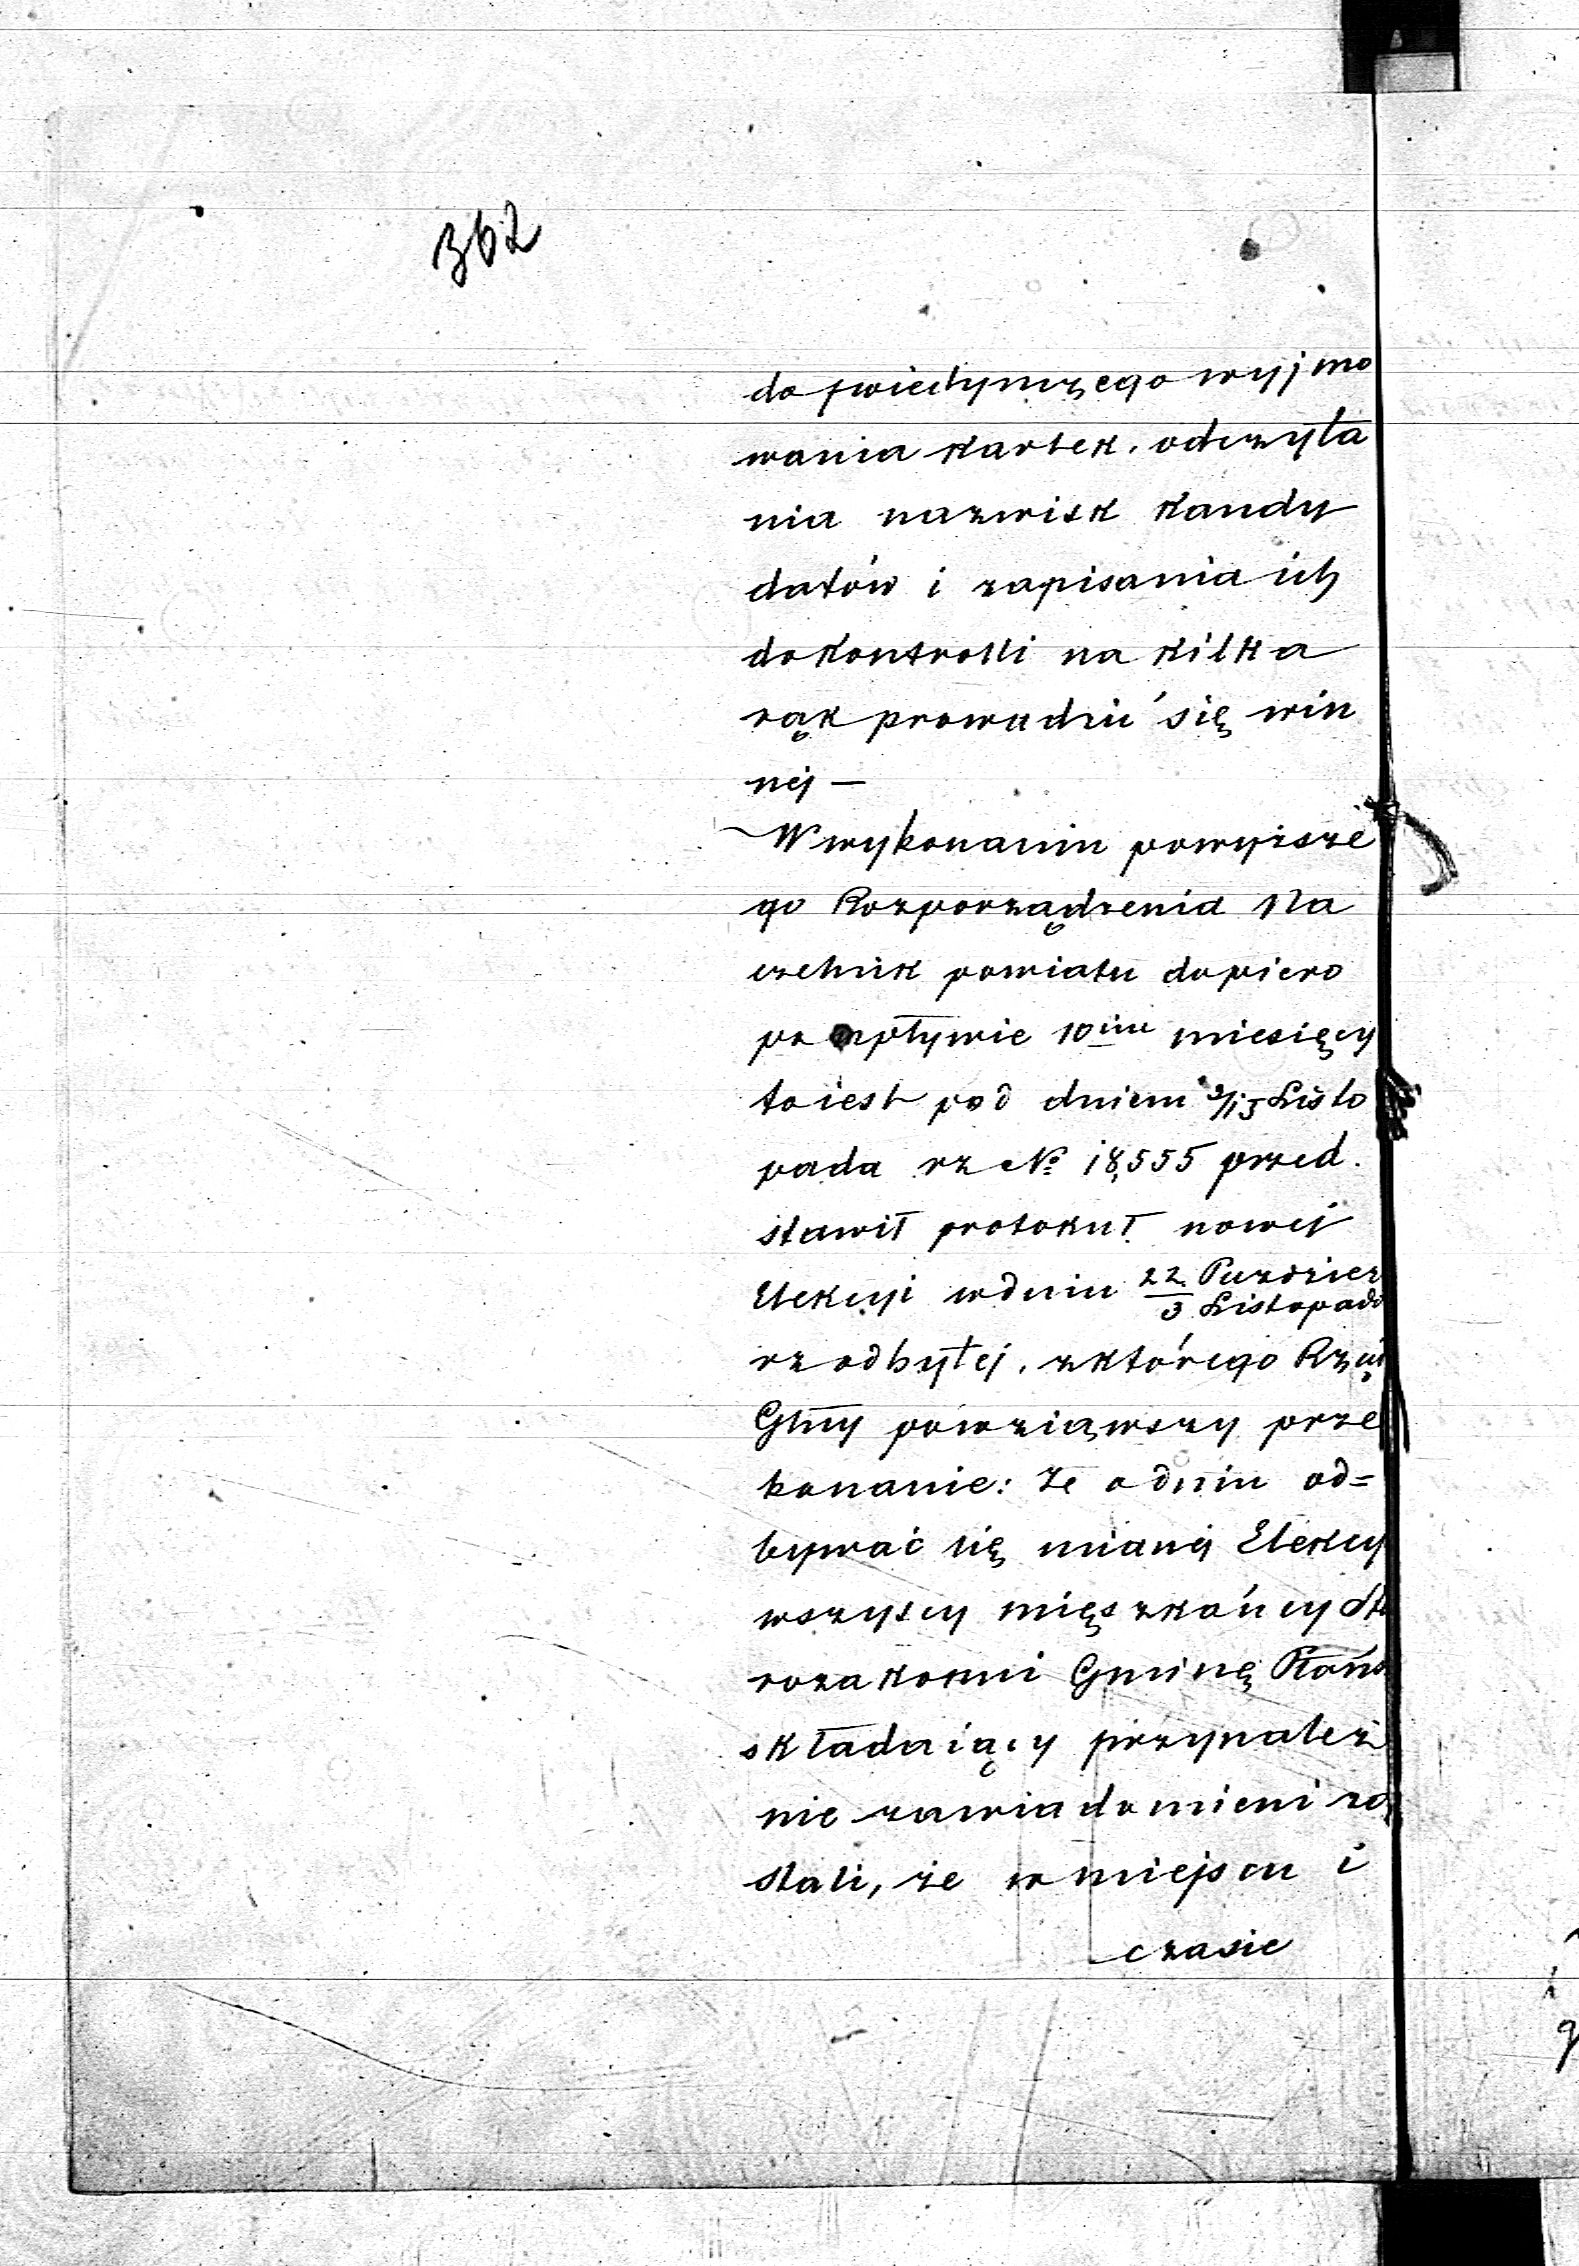 362
do pojedynczego wyjmo
wania kartek, odczyta
nia nazwisk kandy
datów i zapisania ich
do kontrolli na kilka
rąk prowadzić się win
néj —
W wykonaniu powyższe
go Rozporządzenia Na
czelnik powiatu dopiero
po upływie 10ciu miesięcy
to iest pod dniem 3/15 Listo
pada rz No 18,555 przed.
stawił protokuł nowéj
Elekcyi w dniu 22 Paździer
3 Listopada
rz odbytéj, z którego Rząd
Glny powziąwszy prze
konanie: że o dniu od=
bywać się mianéj Elekcyi
wszyscy mięszkańcy St
rozakonni Gminę Płońs
składaiący przynależ
nie zawiadomieni zo
stali, że w miejscu i
czasie